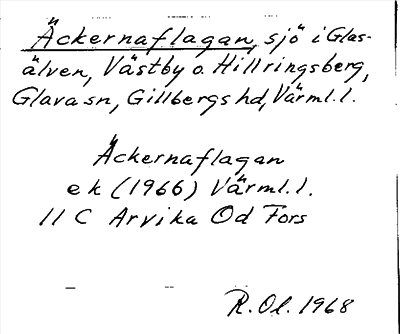 Äckernaflagan, sjö i Glas-
älven, Västby o. Hillringsberg,
Glava sn, Gillbergs hd, Värml. l.
Äckernaflagan
ek (1966) Värml. l.
11 C Arvika Od Fors
R. Ol. 1968